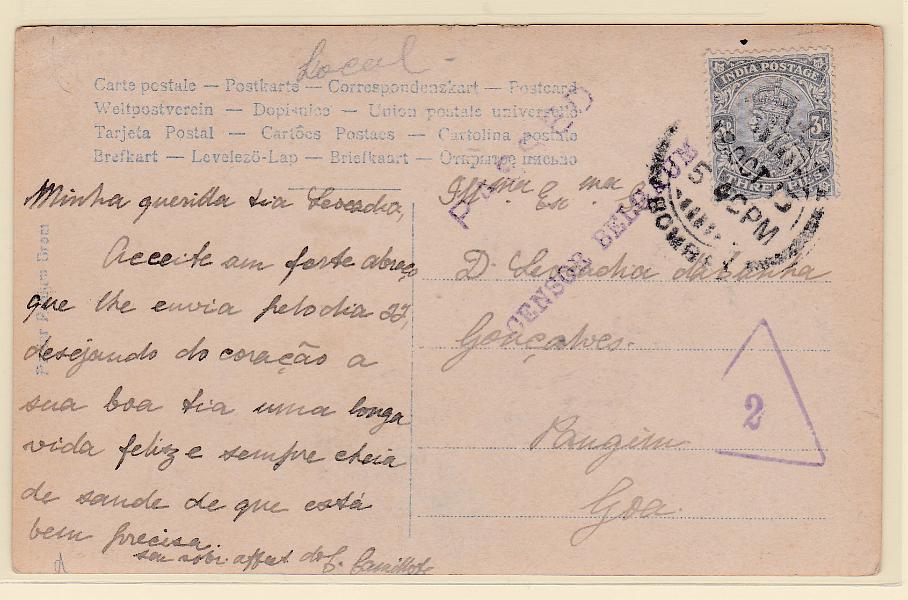 Local -
Carte postale — Postkarte — Correspondenzkart — Postcard
Weltpostverein — Dopisnice — Union postale universelle
Tarjeta Postal — Cartões Postaes — Cartolina postale
Brefkart — Levelezö-Lap — Briefkaart — Открытое письмо
Minha querilla tia Leocadia,
Acceite um forte abraço
que lhe envia pelo dia 27,
desejando do coração a
sua boa tia uma longa
vida feliz e sempre cheia
de saude de que está
bem precisa.
seu sobr affect
PASSED
CENSOR BELGAUM
INDIA POSTAGE
3P
BOMBAY
OCT
5
PM
Illma Exma
D. Leocadia da Cunha
Gonçalves.
Pangim
Goa.
2